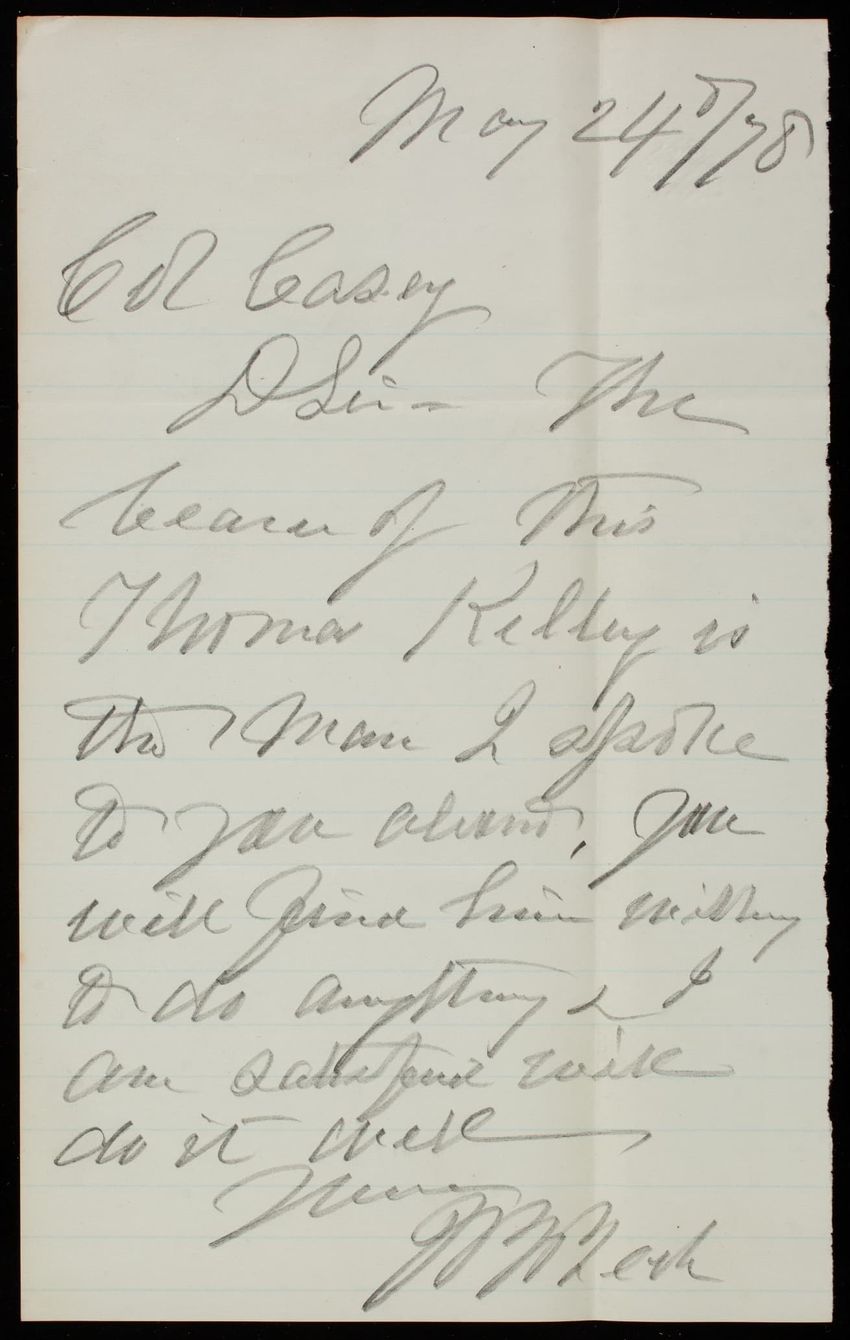 May 24th/78
Col Casey
D Sir - The
bearer of this
Thomas Kelley is
the man I spoke
to you about, you
will find him willing
to do anything & I
am satisfied will
do it well
Yours